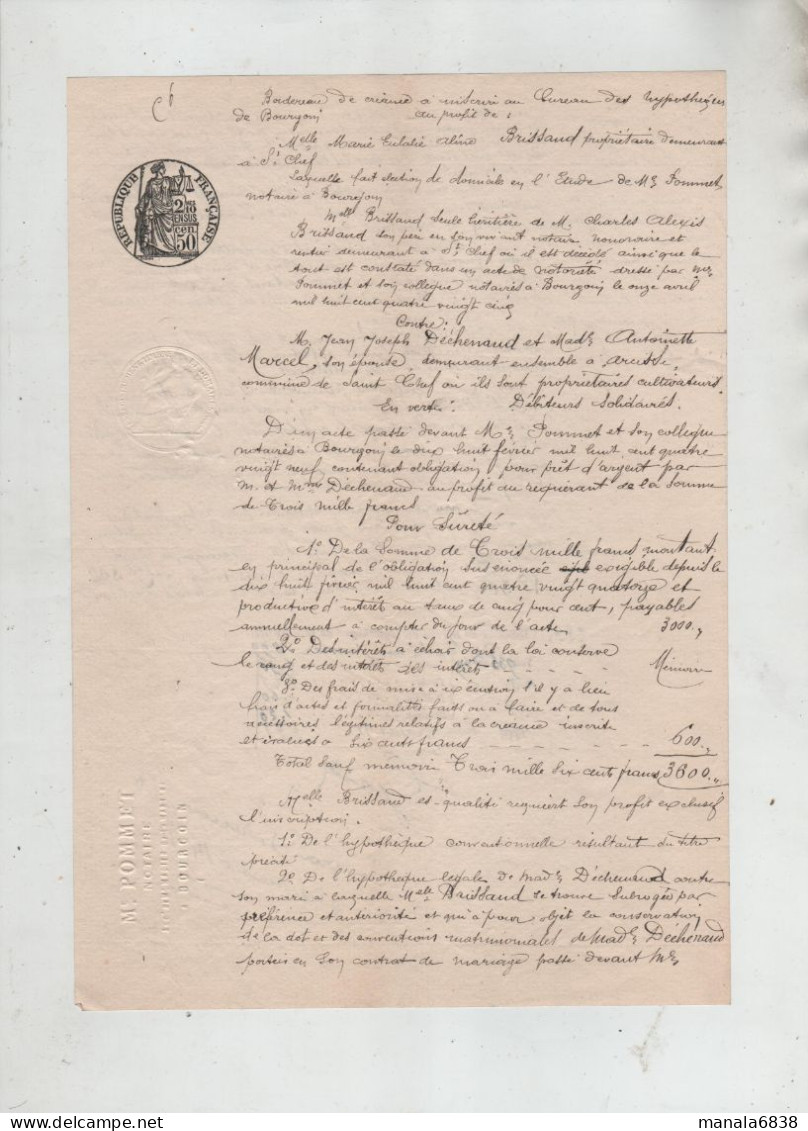 Bordereau de créance à inscrire au bureau des hypothèques
de Bourgoin au profit de :
Melle Marie Eulalie Aline Brissaud propriétaire demeurant
à St Chef
Laquelle fait élection de domicile en l'Etude de Me Pommet
notaire à Bourgoin
Melle Brissaud seule héritière de M. Charles Alexis
Brissaud son père en son vivant notaire honoraire et
rentier demeurant à St Chef où il est décédé ainsi que le
tout est constaté dans un acte de notoriété dressé par Me
Pommet et son collègue notaires à Bourgoin le onze avril
mil huit cent quatre vingt cinq
Contre :
M. Jean Joseph Déchenaud et Made Antoinette
Marcel, son épouse demeurant ensemble à
commune de Saint Chef où ils sont propriétaires cultivateurs.
En vertu : Débiteurs Solidaires.
D'un acte passé devant Me Pommet et son collègue
notaires à Bourgoin le dix huit février mil huit cent quatre
vingt neuf contenant obligation pour prêt d'argent par
M. et Mme Déchenaud au profit du requérant de la somme
de Trois mille francs
Pour Sûreté
1º De la Somme de Trois mille francs montant
en principal de l'obligation sus énoncée exigible depuis le
dix huit février mil huit cent quatre vingt quatorze et
productive d'intérêts au taux de cinq pour cent, payables
annuellement à compter du jour de l'acte 3000 "
2º Des intérêts à échoir dont la loi conserve
le rang et des intérêts des intérêts - - - - Mémoire
3º Des frais de mise à exécution s'il y a lieu
frais d'actes et formalités faits ou à faire et de tous
accessoires légitimes relatifs à la créance inscrite
et évalués à six cents francs - - - - - 600 "
Total sauf mémoire Trois mille six cents francs 3600 "
Melle Brissaud es-qualité requiert à son profit exclusif
l'inscription.
1º De l'hypothèque conventionnelle résultant du titre
précité
2º De l'hypothèque légale de Made Déchenaud contre
son mari à laquelle Melle Brissaud se trouve subrogée par
préférence et antériorité et qui a pour objet la conservation
de la dot et des conventions matrimoniales de Made Déchenaud
portées en son contrat de mariage passé devant Me
RÉPUBLIQUE FRANÇAISE
2/10 EN SUS
50 cen
M. POMMET
NOTAIRE
BOURGOIN
manala6838